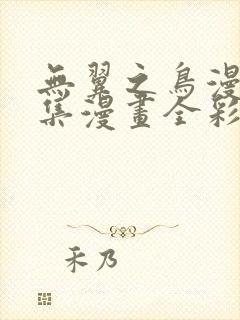 無翼之鳥漫
集漫畫全彩
禾乃